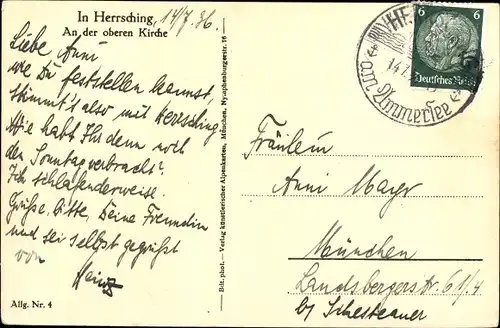 In Herrsching, 14/7.36.
An der oberen Kirche
Liebe Anni
wie Du feststellen kannst,
stimmt's also mit Herrsching.
Wie habt Ihr denn noch
den Sonntag verbracht?
Ich schlafenderweise.
Grüße bitte Deine Freundin
und sei selbst gegrüßt
von
Heinz
Allg. Nr. 4
Bilt. phot. – Verlag künstlerischer Alpenkarten, München, Nymphenburgerstr. 16
6 6
Deutsches Reich
HE
14.7.
Ammersee
Fräulein
Anni Mayr
München
Landsbergerstr. 61/4
bei